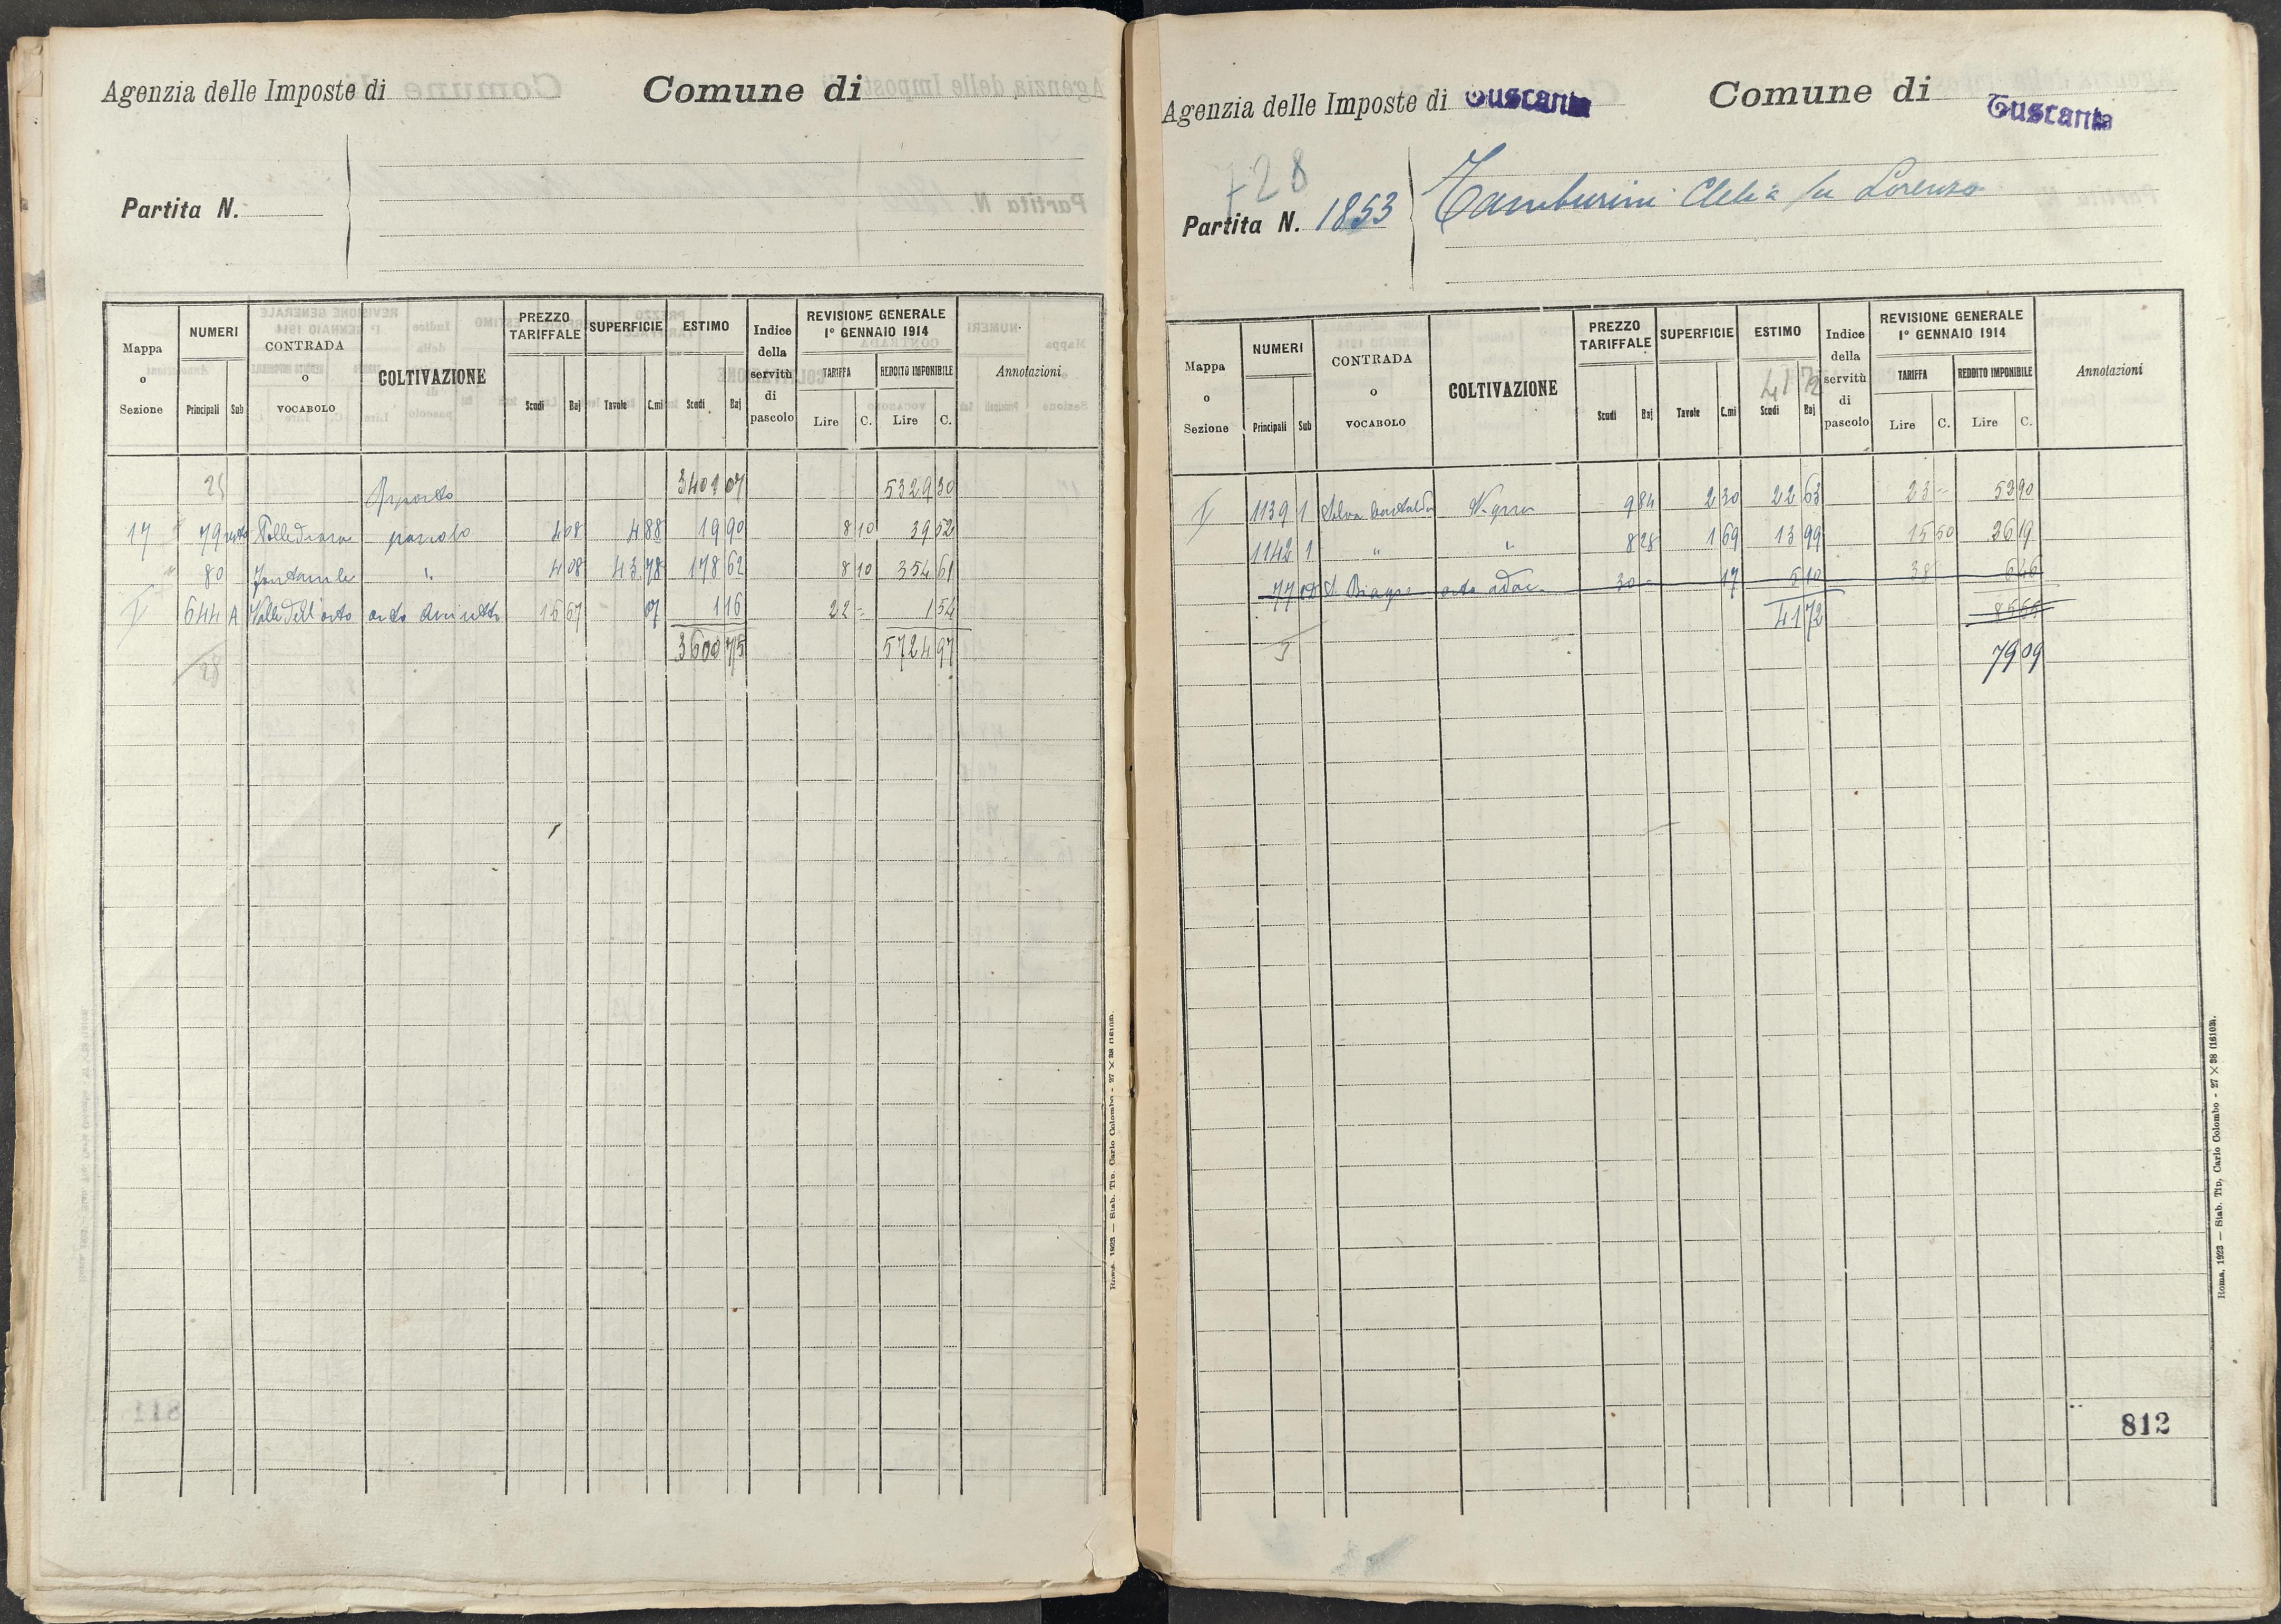 Agenzia delle Imposte di
Comune di
Partita N.
Mappa o Sezione
NUMERI
Principali Sub
CONTRADA o VOCABOLO
COLTIVAZIONE
PREZZO TARIFFALE
Scudi Baj
SUPERFICIE
Tavole C.mi
ESTIMO
Scudi Baj
Indice della servitù di pascolo
REVISIONE GENERALE 1° GENNAIO 1914
TARIFFA
Lire C.
REDDITO IMPONIBILE
Lire C.
Annotazioni
25 Riporto 3401 07 5329 30
17 79 pascolo 4 08 4 88 19 90 8 10 39 52
" 80 " 4 08 43 78 178 62 8 10 354 61
I 644 A Valle dell'orto orto asciutto 16 67 07 1 16 22 = 1 54
3600 75 5724 97
28
Roma, 1923 — Stab. Tip. Carlo Colombo - 27 × 38 (16103).
Agenzia delle Imposte di Tuscania
Comune di Tuscania
728
Partita N. 1853
Tamburini Clelia fu Lorenzo
Mappa o Sezione
NUMERI
Principali Sub
CONTRADA o VOCABOLO
COLTIVAZIONE
PREZZO TARIFFALE
Scudi Baj
SUPERFICIE
Tavole C.mi
ESTIMO
41 72
Scudi Baj
Indice della servitù di pascolo
REVISIONE GENERALE 1° GENNAIO 1914
TARIFFA
Lire C.
REDDITO IMPONIBILE
Lire C.
Annotazioni
I 1139 1 Selva 9 84 2 30 22 63 23 = 53 90
1142 1 " " 8 28 1 69 13 99 15 50 26 19
77 S. Biagio orto 30 = 17 5 10 38 6 46
41 72 86 55
3 79 09
812
Roma, 1923 — Stab. Tip. Carlo Colombo - 27 × 38 (16103).